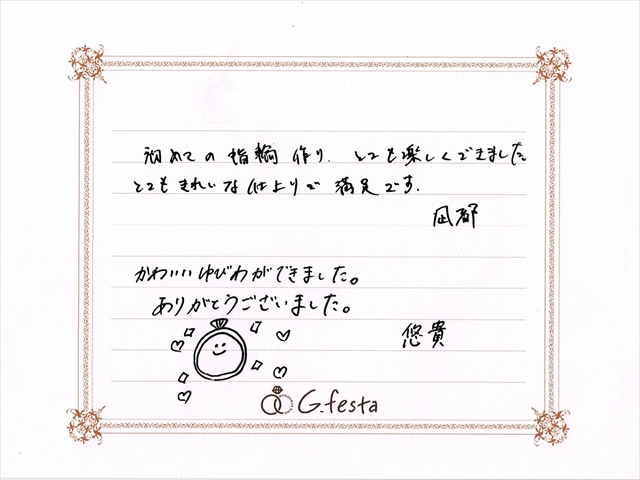 初めての指輪作り、とても楽しくできました
とてもきれいな仕上りで満足です.
凪都
かわいいゆびわができました。
ありがとうございました。
悠貴
G.festa